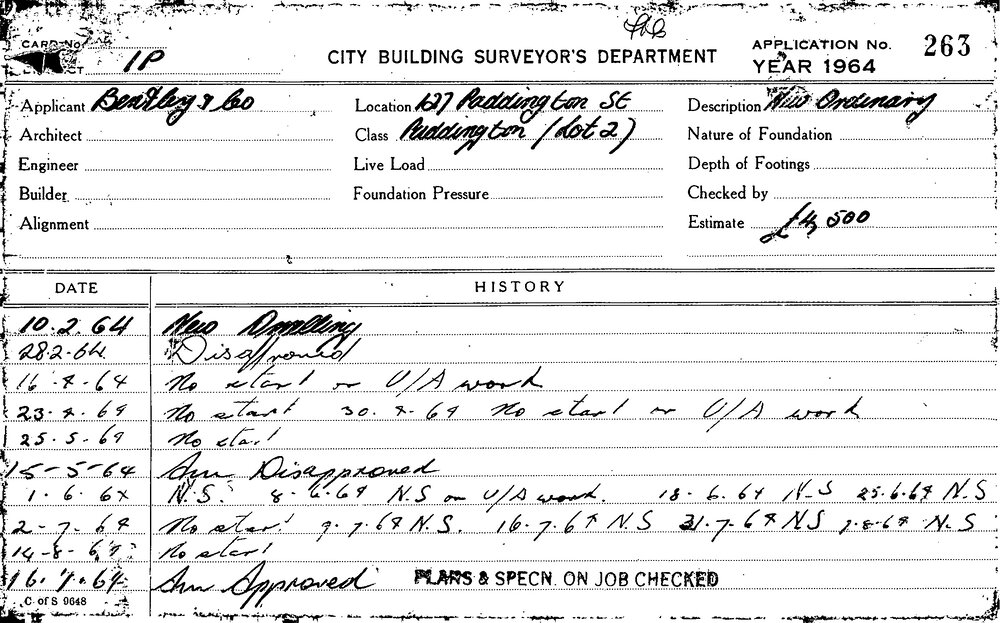 CARD No.
1P
CITY BUILDING SURVEYOR'S DEPARTMENT
APPLICATION No. 263
YEAR 1964
Applicant Bentley & Co
Location 127 Paddington St
Description New Ordinary
Architect
Class Paddington (Lot 2)
Nature of Foundation
Engineer
Live Load
Depth of Footings
Builder
Foundation Pressure
Checked by
Alignment
Estimate £4,500
DATE HISTORY
10.2.64 New Dwelling
28.2.64 Disapproved
16.4.64 No start or U/A work
23.4.64 No start 30.4.64 No start or U/A work
25.5.64 No start
15-5-64 Am Disapproved
1.6.64 N.S. 8.6.64 N.S or U/A work. 18.6.64 N.S 25.6.64 N.S
2-7-64 No start 9.7.64 N.S. 16.7.64 N.S 31.7.64 N.S 7.8.64 N.S
14-8-64 No start
16.7.64 Am Approved PLANS & SPECN. ON JOB CHECKED
C. of S 9648